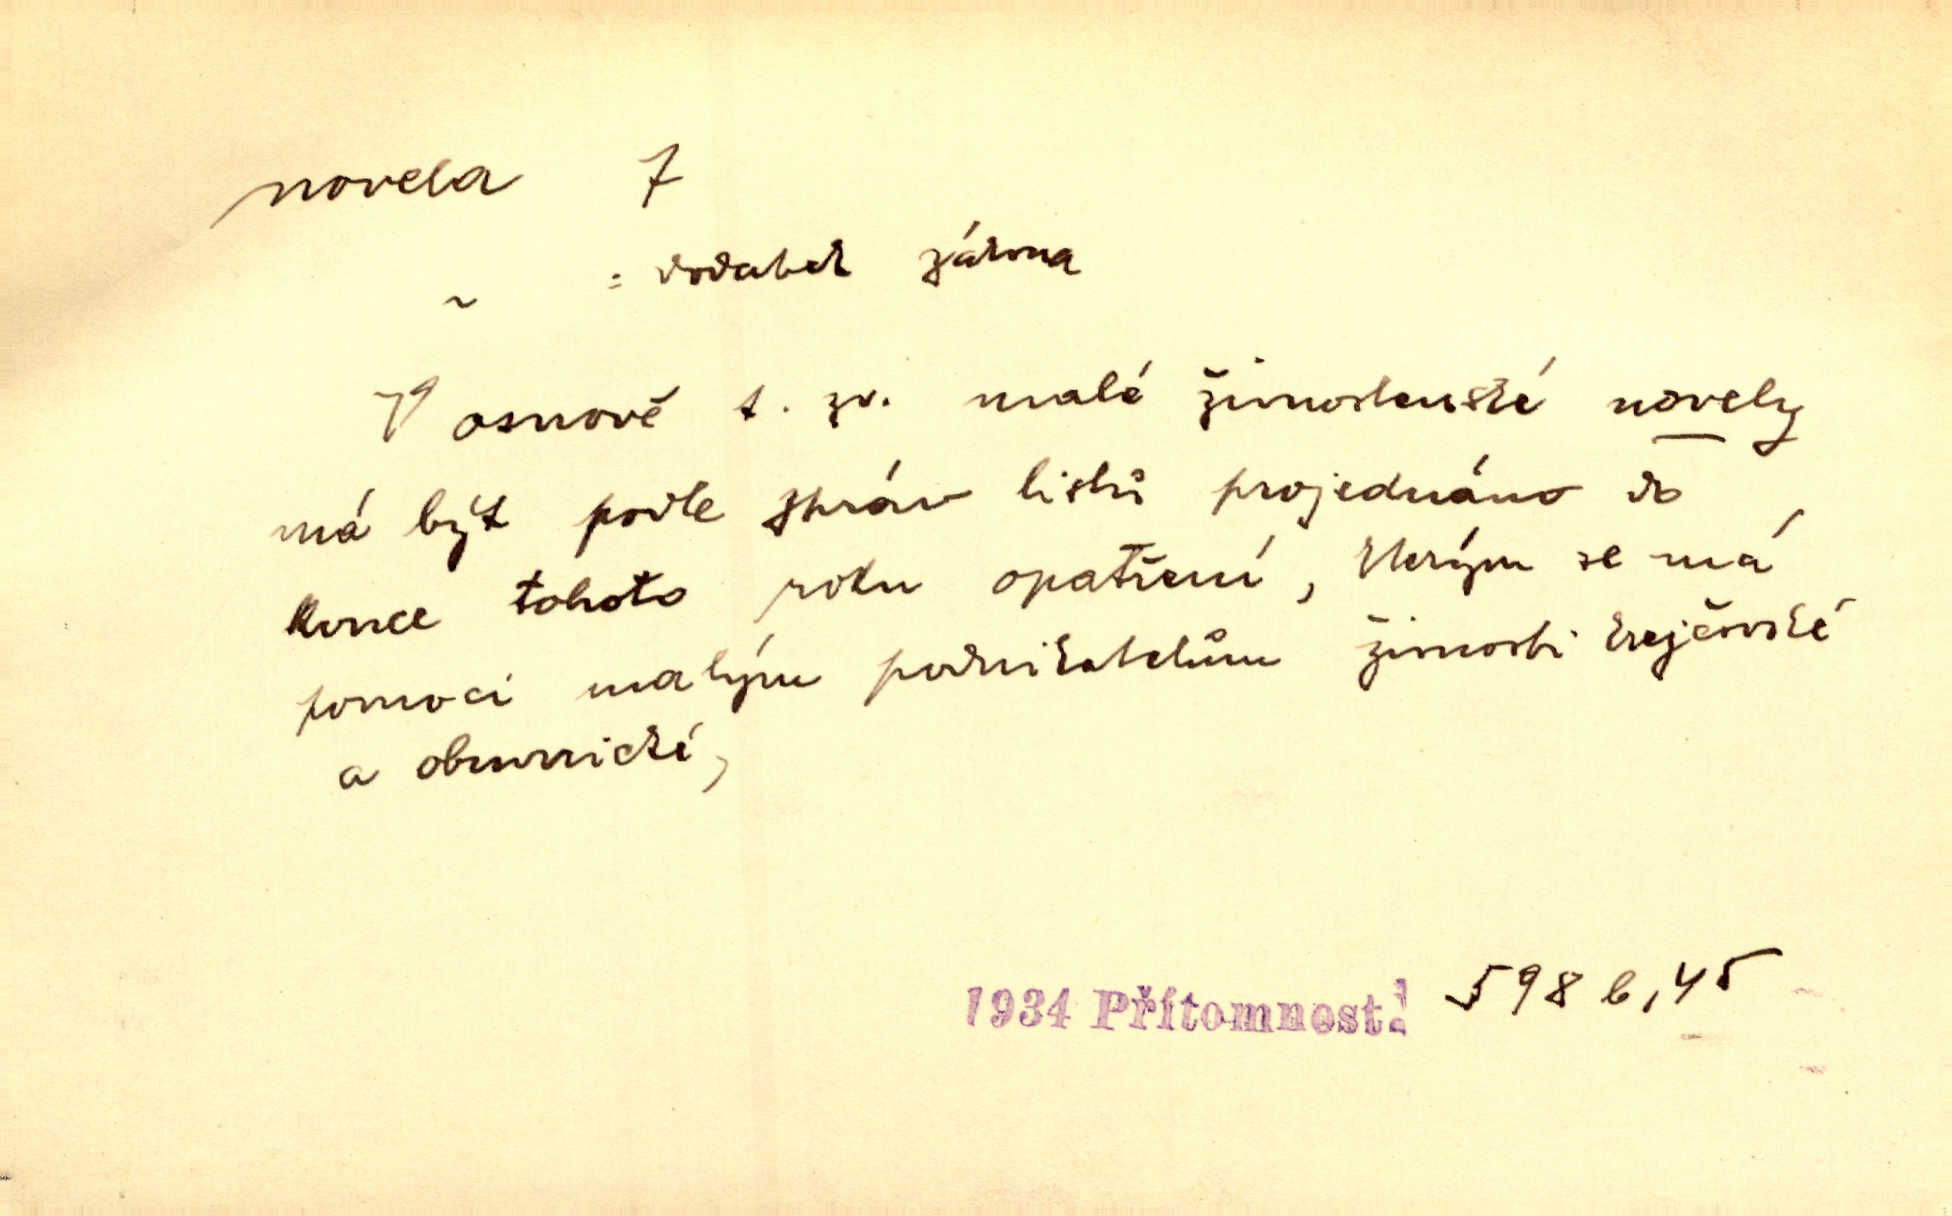 novela 7
= dodatek zákona
V osnově t. zv. malé živnostenské novely
má být podle zpráv listů projednáno do
konce tohoto roku opatření, kterým se má
pomoci malým podnikatelům živnosti krejčovské
a obuvnické,
1934 Přítomnost. 598 b, 45